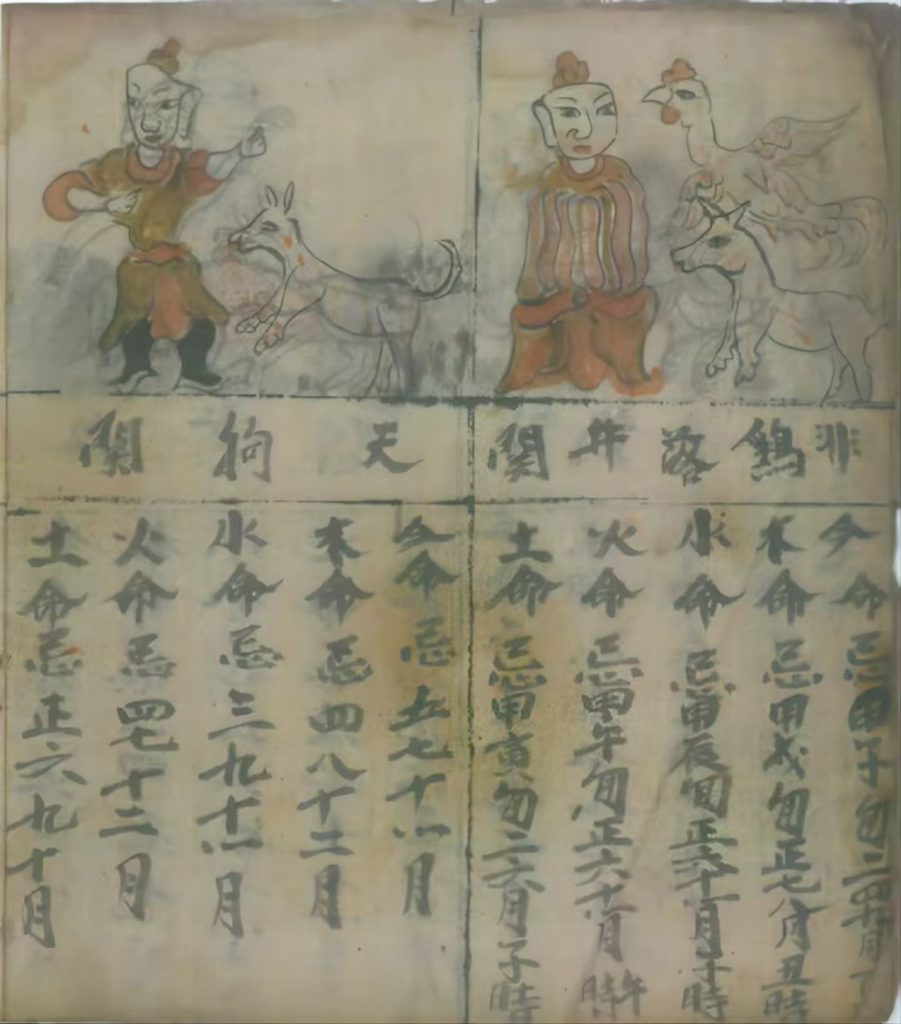 非鷄落井関
金命忌甲子旬三四十月
木命忌甲戌旬正七八月丑時
水命忌甲辰旬正六十月子時
火命忌甲午旬正六十月午時
土命忌甲寅旬二六月子時
天狗関
金命忌五七十一月
木命忌四八十二月
水命忌三九十一月
火命忌四七十二月
土命忌正六九十月